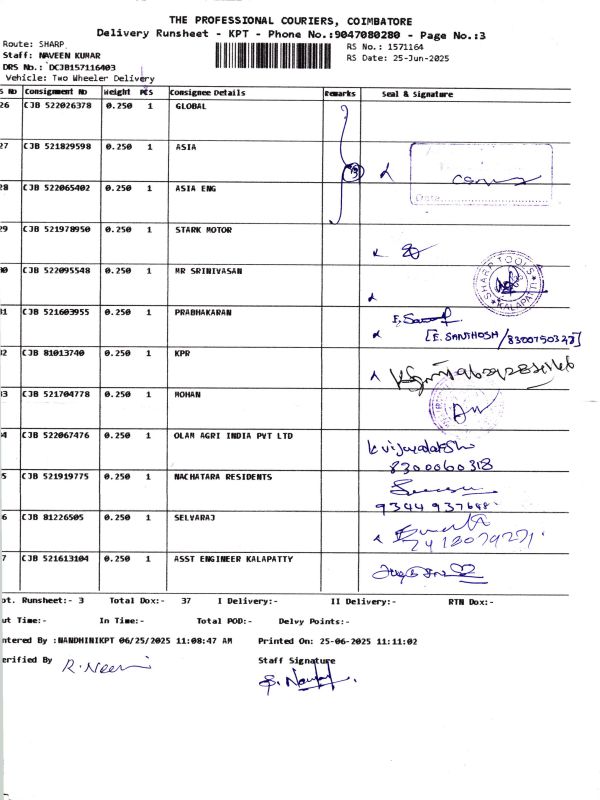 THE PROFESSIONAL COURIERS, COIMBATORE
Delivery Runsheet - KPT - Phone No.:9047080280 - Page No.:3
Route: SHARP
RS No.: 1571164
Staff: NAVEEN KUMAR
RS Date: 25-Jun-2025
DRS No.: DCJB157116403
Vehicle: Two Wheeler Delivery
S No Consignment No Weight PCS Consignee Details Remarks Seal & Signature
26 CJB 522026378 0.250 1 GLOBAL
27 CJB 521829598 0.250 1 ASIA
28 CJB 522065402 0.250 1 ASIA ENG
Date
29 CJB 521978950 0.250 1 STARK MOTOR
30 CJB 522095548 0.250 1 MR SRINIVASAN
SHARP TOOLS
KALAPATTI
31 CJB 521603955 0.250 1 PRABHAKARAN
[E. SANTHOSH / 8300750327]
32 CJB 81013740 0.250 1 KPR
33 CJB 521704778 0.250 1 MOHAN
34 CJB 522067476 0.250 1 OLAM AGRI INDIA PVT LTD
K vijayalakshmi
8300060318
35 CJB 521919775 0.250 1 NACHATARA RESIDENTS
9344937648
36 CJB 81226505 0.250 1 SELVARAJ
37 CJB 521613104 0.250 1 ASST ENGINEER KALAPATTY
pt. Runsheet:- 3 Total Dox:- 37 I Delivery:- II Delivery:- RTN Dox:-
ut Time:- In Time:- Total POD:- Delvy Points:-
ntered By :NANDHINIKPT 06/25/2025 11:08:47 AM Printed On: 25-06-2025 11:11:02
erified By Staff Signature